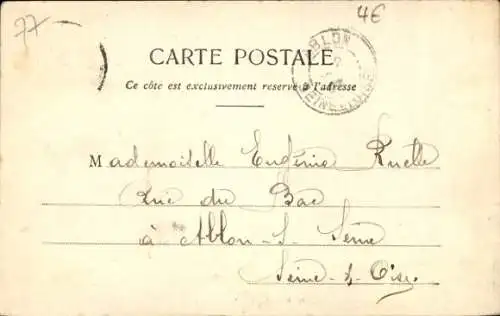 77
4€
ABLON
SEINE-ET-OISE
CARTE POSTALE
Ce côté est exclusivement réservé à l'adresse
Mademoiselle Eugénie Ruelle
Rue du Bac
à Ablon-s-Seine
Seine-&-Oise.